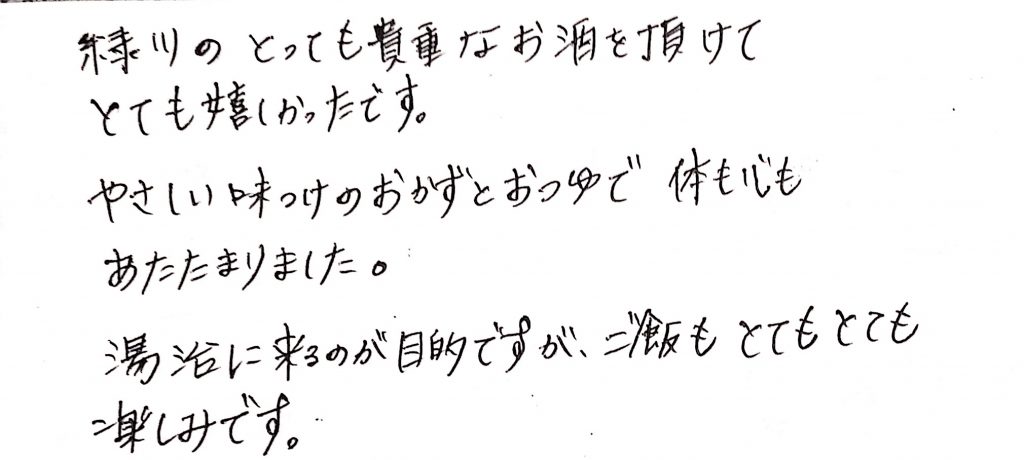 緑川のとっても貴重なお酒を頂けて
とても嬉しかったです。
やさしい味つけのおかずとおつゆで 体も心も
あたたまりました。
湯治に来るのが目的ですが、ご飯もとてもとても
楽しみです。